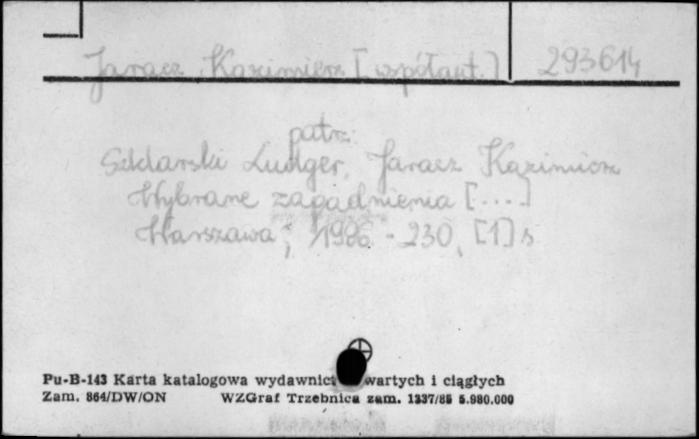 Jaracz Kazimierz [współaut.] 293614
patrz:
Szklarski Ludger, Jaracz Kazimierz
Wybrane zagadnienia [....]
Warszawa ; 1986 - 230, [1] s
Pu-B-143 Karta katalogowa wydawnict wartych i ciągłych
Zam. 864/DW/ON WZGraf Trzebnica zam. 1337/85 5.980.000